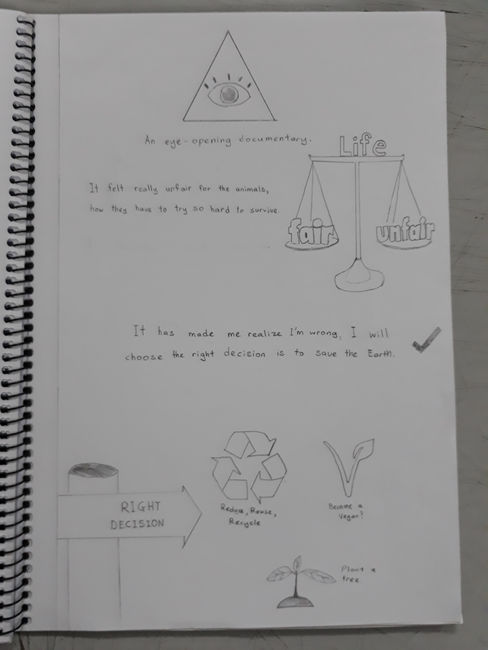 An eye-opening documentary.
Life
It felt really unfair for the animals,
how they have to try so hard to survive.
fair
unfair
It has made me realize I'm wrong, I will
choose the right decision is to save the Earth.
RIGHT
DECISION
Reduce, Reuse,
Recycle
Become a
Vegan!
Plant a
tree